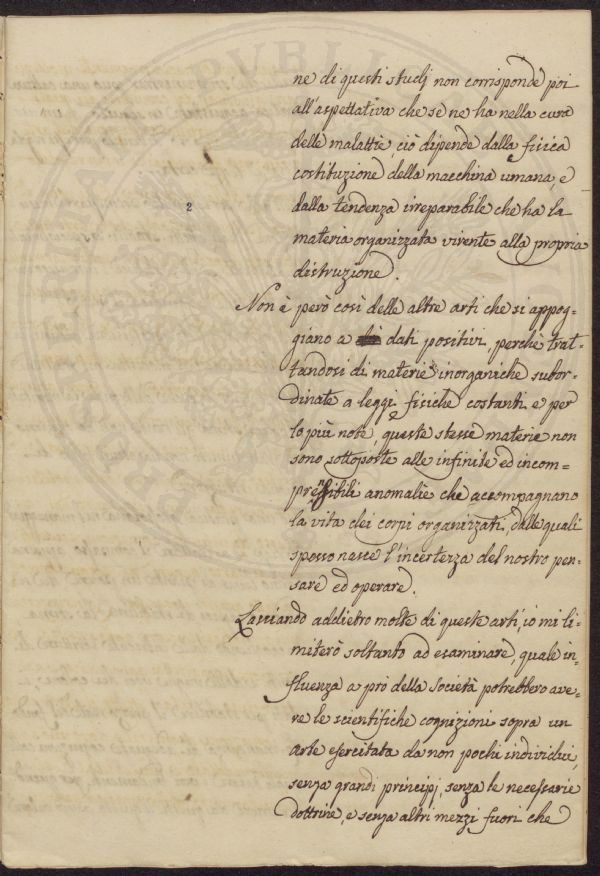 ne di questi studj non corrisponde poi
all'aspettativa che se ne ha nella cura
delle malattie, ciò dipende dalla fisica
costituzione della macchina umana, e
2
dalla tendenza irreparabile che ha la
materia organizzata vivente alla propria
distruzione.
Non è però così delle altre arti che si appog=
giano a dati positivi, perchè trat=
tandosi di materie inorganiche subor=
dinate a leggi fisiche costanti e per
lo più note, queste stesse materie non
sono sottoposte alle infinite ed incom=
prensibili anomalie che accompagnano
la vita dei corpi organizzati, dalle quali
spesso nasce l'incertezza del nostro pen=
sare ed operare.
Lasciando addietro molte di queste arti, io mi li=
miterò soltanto ad esaminare, quale in=
fluenza a prò della società potrebbero ave=
re le scientifiche cognizioni sopra un
arte esercitata da non pochi individui,
senza grandi principj, senza le necessarie
dottrine, e senza altri mezzi fuori che